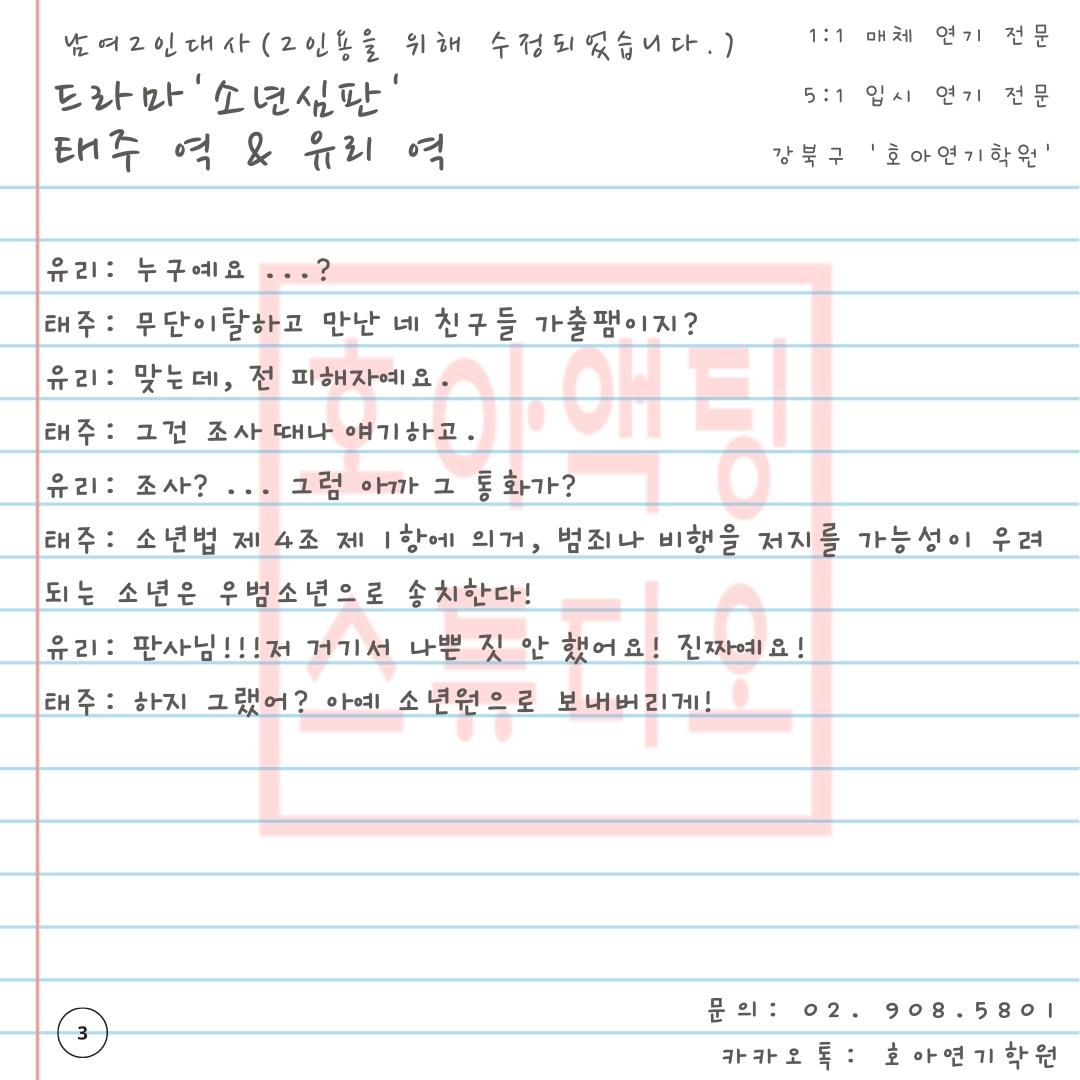 남여2인대사(2인용을 위해 수정되었습니다.)
드라마'소년심판'
태주 역 & 유리 역
1:1 매체 연기 전문
5:1 입시 연기 전문
강북구 '호아연기학원'
유리: 누구예요 ...?
태주: 무단이탈하고 만난 네 친구들 가출팸이지?
유리: 맞는데, 전 피해자예요.
태주: 그건 조사 때나 얘기하고.
유리: 조사? ... 그럼 아까 그 통화가?
태주: 소년법 제 4조 제 1항에 의거, 범죄나 비행을 저지를 가능성이 우려
되는 소년은 우범소년으로 송치한다!
유리: 판사님!!!저 거기서 나쁜 짓 안 했어요! 진짜예요!
태주: 하지 그랬어? 아예 소년원으로 보내버리게!
호아액팅
스튜디오
3
문의: 02. 908.5801
카카오톡: 호아연기학원